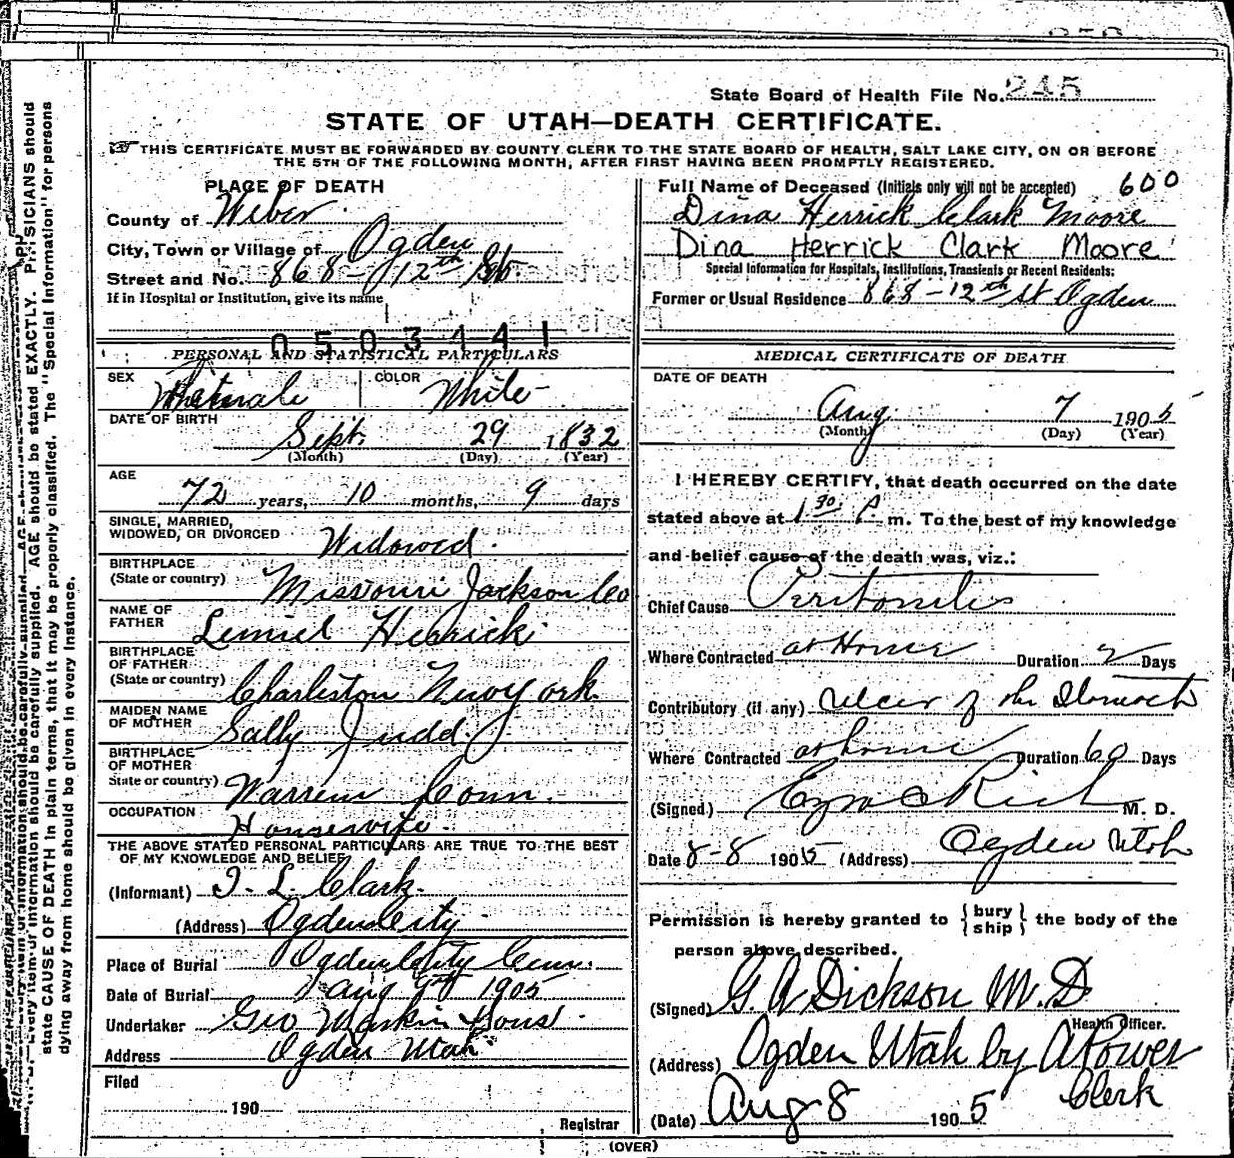 State Board of Health File No. 245
STATE OF UTAH—DEATH CERTIFICATE.
THIS CERTIFICATE MUST BE FORWARDED BY COUNTY CLERK TO THE STATE BOARD OF HEALTH, SALT LAKE CITY, ON OR BEFORE
THE 5TH OF THE FOLLOWING MONTH, AFTER FIRST HAVING BEEN PROMPTLY REGISTERED.
PLACE OF DEATH
County of Weber
City, Town or Village of Ogden
Street and No. 868-12th St
If in Hospital or Institution, give its name
0503441
PERSONAL AND STATISTICAL PARTICULARS
SEX Female COLOR White
DATE OF BIRTH
Sept. 29 1832
(Month) (Day) (Year)
AGE
72 years, 10 months, 9 days
SINGLE, MARRIED,
WIDOWED, OR DIVORCED Widowed.
BIRTHPLACE
(State or country) Missouri Jackson Co
NAME OF
FATHER Lemiel Herrick
BIRTHPLACE
OF FATHER
(State or country) Charleston New York.
MAIDEN NAME
OF MOTHER Sally Judd.
BIRTHPLACE
OF MOTHER
State or country) Warren Conn.
OCCUPATION
Housewife.
THE ABOVE STATED PERSONAL PARTICULARS ARE TRUE TO THE BEST
OF MY KNOWLEDGE AND BELIEF
(Informant) Clark.
(Address) Ogden City
Place of Burial Ogden City Cem.
Date of Burial Aug 9th 1905
Undertaker Geo Sons
Address Ogden Utah
Filed
190
Registrar
(OVER)
Full Name of Deceased (Initials only will not be accepted) 600
Dina Herrick Clark Moore
Dina Herrick Clark Moore
Special Information for Hospitals, Institutions, Transients or Recent Residents:
Former or Usual Residence 868-12th St Ogden
MEDICAL CERTIFICATE OF DEATH
DATE OF DEATH
Aug. 7 1905
(Month) (Day) (Year)
I HEREBY CERTIFY, that death occurred on the date
stated above at 1 30 P m. To the best of my knowledge
and belief cause of the death was, viz.:
Chief Cause Peritonitis
Where Contracted at Home Duration 2 Days
Contributory (if any) Ulcer of the Stomach
Where Contracted at home Duration 60 Days
(Signed.) Ezra C Rich M. D.
Date 8-8 1905 (Address) Ogden Utah
Permission is hereby granted to {bury ship} the body of the
person above described.
(Signed) G A Dickson M.D
Health Officer.
(Address) Ogden Utah by A Power
Clerk
(Date) Aug 8 1905
state CAUSE OF DEATH in plain terms, that it may be properly classified. The "Special Information" for persons
dying away from home should be given in every instance.
Every item of information should be carefully supplied. AGE should be stated EXACTLY. PHYSICIANS should